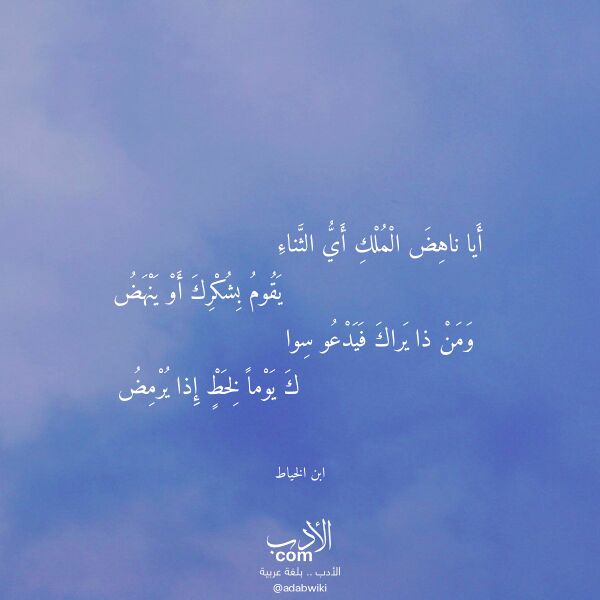 أَيا ناهِضَ الْمُلْكِ أَيُّ الثَّناءِ
يَقُومُ بِشُكْرِكَ أَوْ يَنْهَضُ
وَمَنْ ذا يَراكَ فَيَدْعُو سِوا
كَ يَوْماً لِخَطْبٍ إِذا يُرْمِضُ
ابن الخياط
الأدب
com
الأدب .. بلغة عربية
@adabwiki